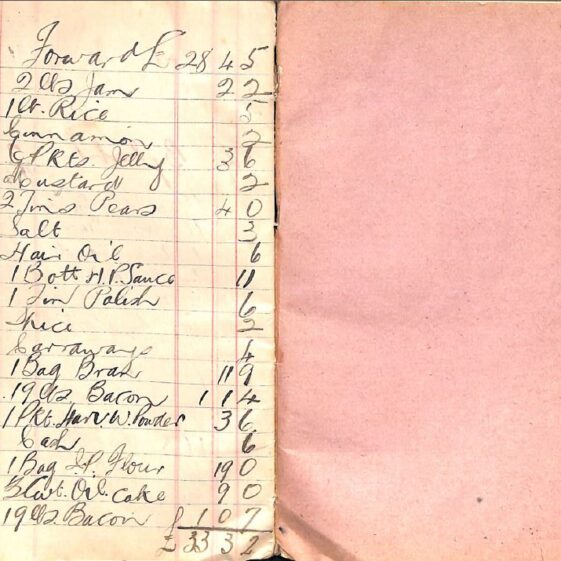 Forward £ 28 4 5
2 lbs Jam 2 2
1 lb. Rice 5
Cinnamon 2
6 Pkts. Jelly 3 6
Mustard 2
2 Tins Pears 4 0
Salt 3
Hair Oil 6
1 Bott H.P. Sauce 11
1 Tin Polish 6
Spice 2
Carraways 4
1 Bag Bran 11 9
19 lbs. Bacon 1 1 4
1 Pkt. W. Powder 3 6
Cash 6
1 Bag Flour 19 0
Oil Cake 9 0
19 lbs. Bacon £ 1 0 7
£ 33 3 2